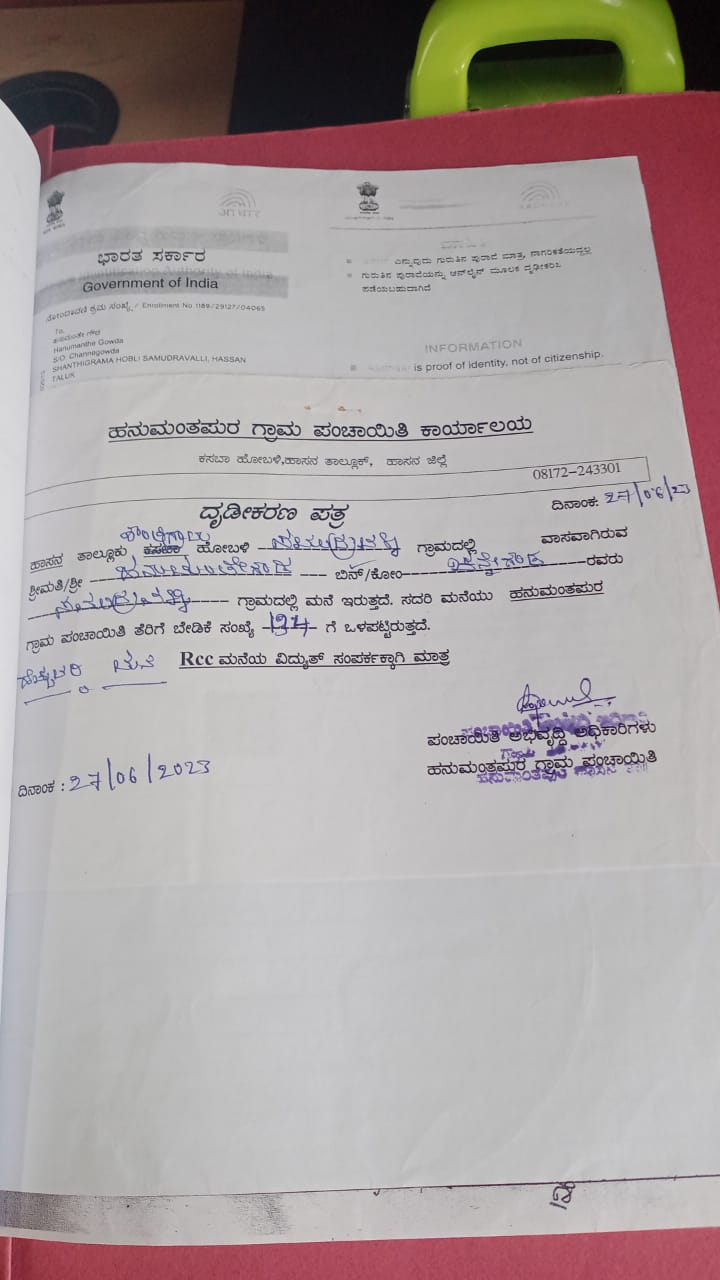 ಭಾರತ ಸರ್ಕಾರ
Government of India
ನೋಂದಾವಣಿ ಕ್ರಮ ಸಂಖ್ಯೆ / Enrolment No 1189/29127/04065
To,
ಹನುಮಂತೇ ಗೌಡ
Hanumanthe Gowda
S/O: Channegowda
SHANTHIGRAMA HOBLI SAMUDRAVALLI, HASSAN
TALUK
ಎನ್ನುವುದು ಗುರುತಿನ ಪುರಾವೆ ಮಾತ್ರ, ನಾಗರಿಕತೆಯದ್ದಲ್ಲ
ಗುರುತಿನ ಪುರಾವೆಯನ್ನು ಆನ್‌ಲೈನ್ ಮೂಲಕ ದೃಢೀಕರಿಸಿ
ಪಡೆಯಬಹುದಾಗಿದೆ
INFORMATION
is proof of identity, not of citizenship.
ಹನುಮಂತಪುರ ಗ್ರಾಮ ಪಂಚಾಯಿತಿ ಕಾರ್ಯಾಲಯ
ಕಸಬಾ ಹೋಬಳಿ,ಹಾಸನ ತಾಲ್ಲೂಕ್, ಹಾಸನ ಜಿಲ್ಲೆ
08172-243301
ದೃಡೀಕರಣ ಪತ್ರ
ದಿನಾಂಕ: 27/06/23
ಹಾಸನ ತಾಲ್ಲೂಕು ಕಸಬಾ ಶಾಂತಿಗ್ರಾಮ ಹೋಬಳಿ ಸಮುದ್ರವಳ್ಳಿ ಗ್ರಾಮದಲ್ಲಿ ವಾಸವಾಗಿರುವ
ಶ್ರೀಮತಿ/ಶ್ರೀ ಹನುಮಂತೇಗೌಡ ಬಿನ್/ಕೋಂ ಚನ್ನೇಗೌಡ ರವರು
ಸಮುದ್ರವಳ್ಳಿ ಗ್ರಾಮದಲ್ಲಿ ಮನೆ ಇರುತ್ತದೆ. ಸದರಿ ಮನೆಯು ಹನುಮಂತಪುರ
ಗ್ರಾಮ ಪಂಚಾಯಿತಿ ತೆರಿಗೆ ಬೇಡಿಕೆ ಸಂಖ್ಯೆ 124 ಗೆ ಒಳಪಟ್ಟಿರುತ್ತದೆ.
ಹೆಚ್ಚುವರಿ ಮನೆ Rcc ಮನೆಯ ವಿದ್ಯುತ್ ಸಂಪರ್ಕಕ್ಕಾಗಿ ಮಾತ್ರ
ಪಂಚಾಯಿತಿ ಅಭಿವೃದ್ಧಿ ಅಧಿಕಾರಿಗಳು
ಹನುಮಂತಪುರ ಗ್ರಾಮ ಪಂಚಾಯಿತಿ
ದಿನಾಂಕ : 27/06/2023